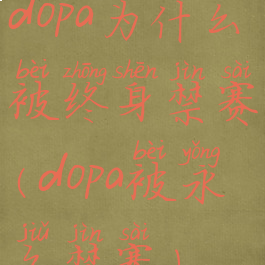 dopa为什么
bèi zhōng shēn jìn sài
被终身禁赛
bèi yǒng
(dopa被永
jiǔ jìn sài
久禁赛)